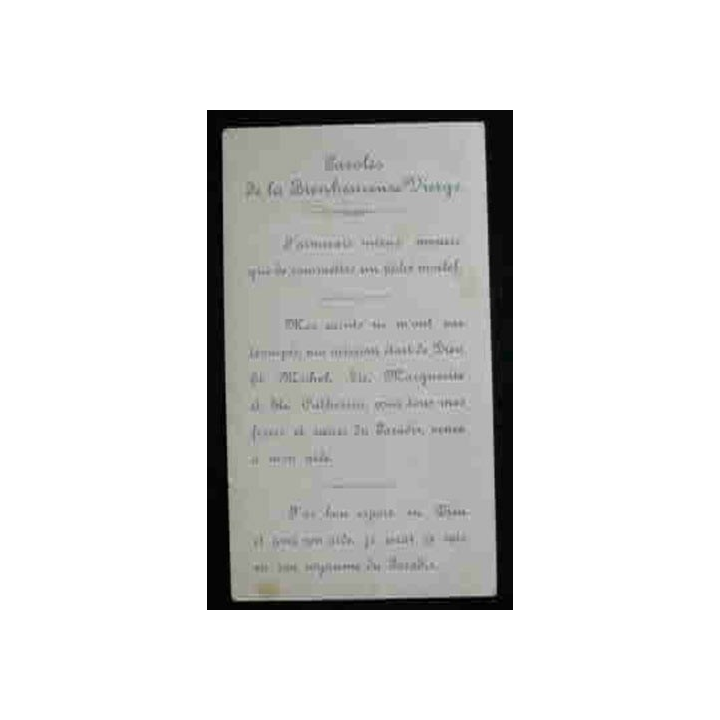 Paroles
de la Bienheureuse Vierge
J'aimerais mieux mourir
que de commettre un péché mortel.
Mes saints ne m'ont pas
trompée, ma mission était de Dieu.
St Michel, Ste Marguerite
et Ste Catherine, vous tous mes
frères et sœurs du Paradis, venez
à mon aide.
J'ai bon espoir en Dieu
et avec son aide, je serai ce soir
en son royaume du Paradis.